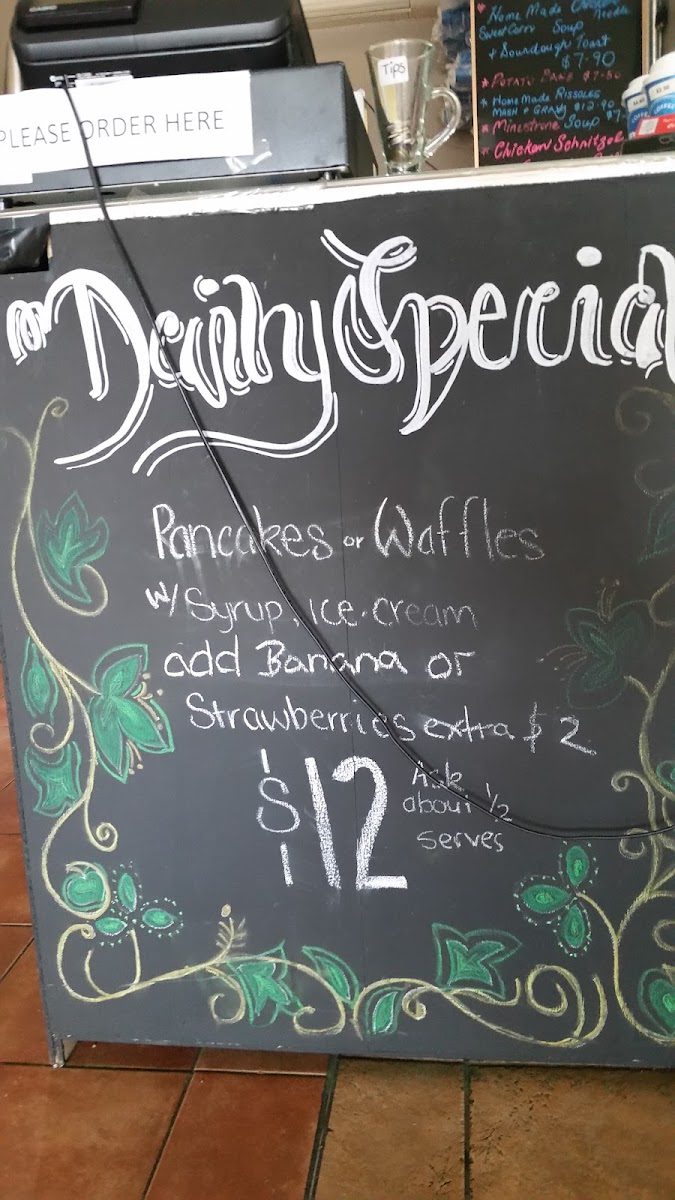 Tips
PLEASE ORDER HERE
Home Made Chicken
Sweet Corn Soup
+ Sourdough Toast
$7.90
* Home Made Rissoles
MASH + GRAVY $12.90
* Minestrone Soup $7
* Chicken Schnitzel
Daily Special
Pancakes or Waffles
w/ Syrup, ice-cream
add Banana or
Strawberries extra $2
$12
Ask
about 1/2
serves